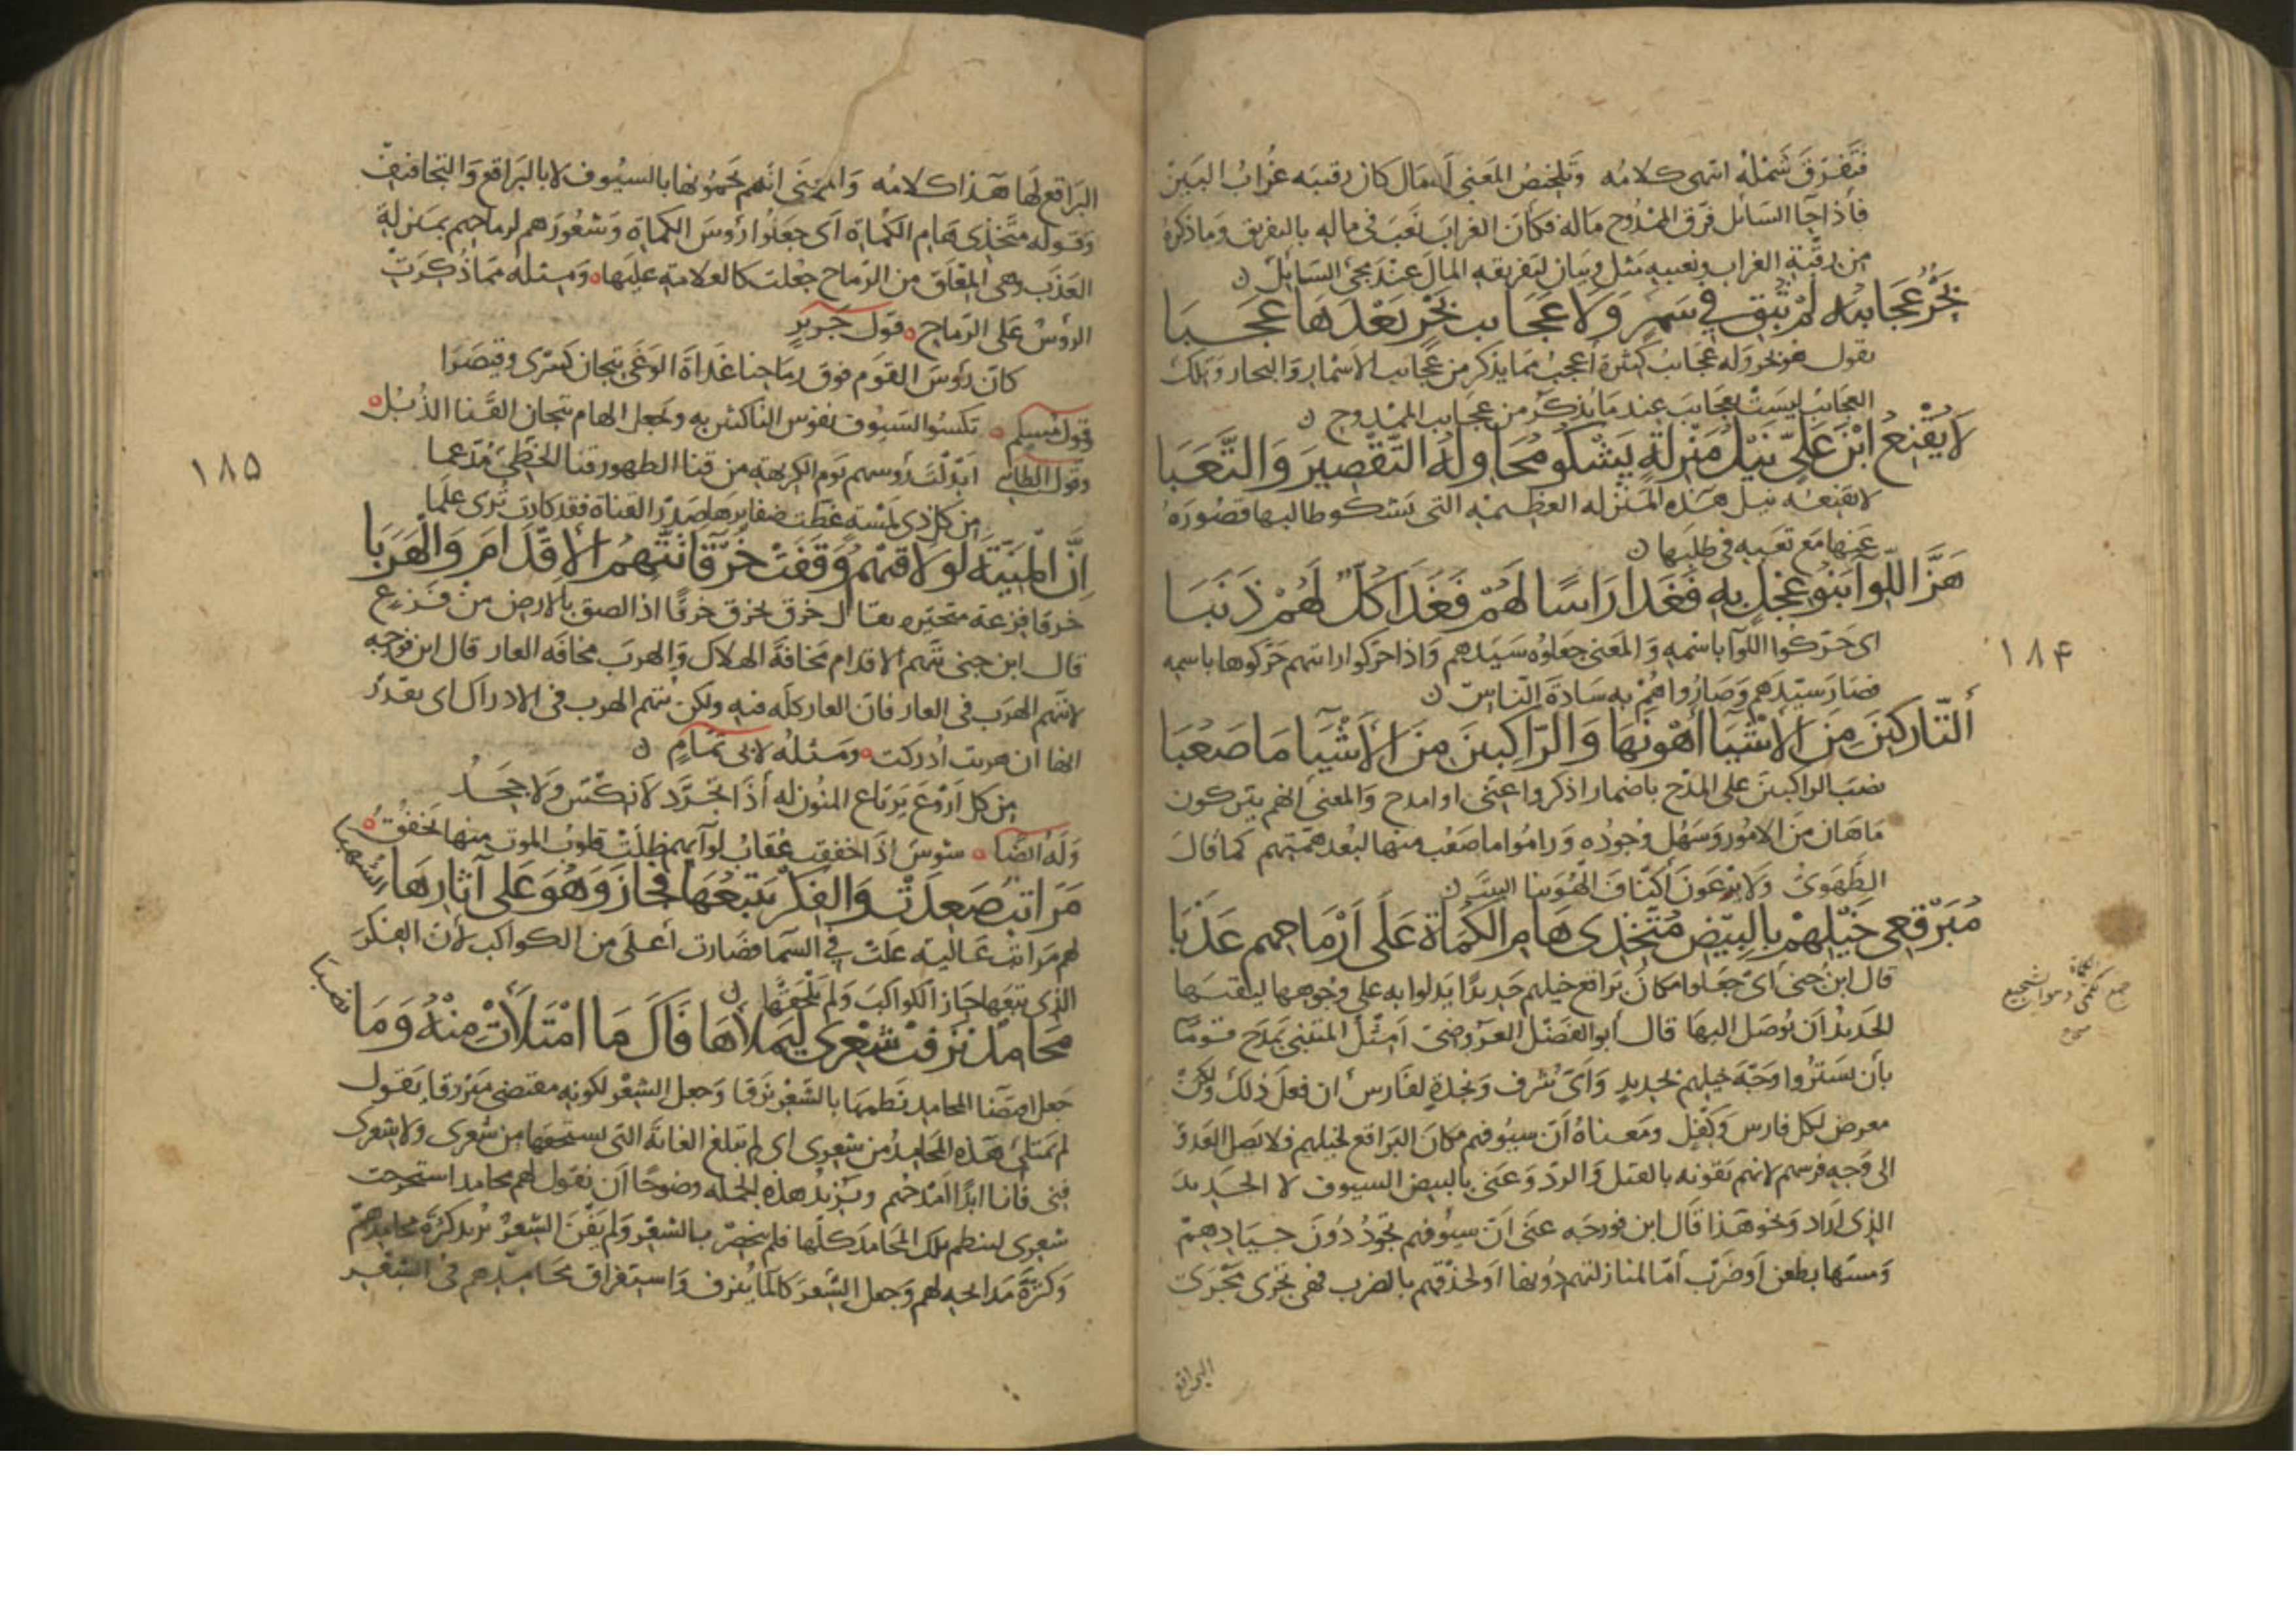 فتفرق شمله انتهى كلامه وتلخيص المعنى أن المال كان رقيبه غراب البين
فاذا جا السائل فرق الممدوح ماله فكان الغراب نعب في ماله بالتفريق وما ذكره
من رقبة الغراب ونعيبه مثل وبيان لتفريقه المال عند مجى السائل
بَحْرٌ عَجَايبُه لم تُبْقِ في سَمَرٍ وَلا عَجَايب بَحْرٍ بَعْدَهَا عَجَبَا
يقول هو بحر وله عجائب كثيرة أعجب مما يذكر من عجايب الاسمار والبحار وتلك
العجائب ليست بعجايب عند ما يذكر من عجايب الممدوح
لَا يُقْنِعُ ابْنَ عَلِيٍّ نَيْلُ مَنْزِلَةٍ يَشْكُو مُحَاوِلُهُ التَّقْصِيرَ وَالتَّعَبَا
لا يقنعه نيل هذه المنزله العظيمه التي يشكو طالبها قصوره
عنها مع تعبه في طلبها
هَزَّ اللِّوَا بَنُو عِجْلٍ بِهِ فَغَدَا رَاسًا لَهُمْ فَغَدَا كُلٌّ لَهُمْ ذَنَبَا
اى حركوا اللوآ باسمه والمعنى جعلوه سيدهم واذا حركوا رايتهم حركوها باسمه
فصار سيدهم وصاروا هم به سادة الناس
أَلتَّارِكِينَ مِنَ الأَشْيَا أَهْوَنَهَا وَالرَّاكِبِينَ مِنَ الأَشْيَآ مَا صَعُبَا
نصب الراكبين على المدح باضمار اذكر واعنى او امدح والمعنى انهم يتركون
ما هان من الامور وسهل وجوده وراموا ما صعب منها لبعد همتهم كما قال
الطهوى ولا يرعون أكناف الهوينا البيت
مُبَرْقِعِى خَيْلِهِمْ بِالبِيضِ مُتَّخِذِى هَامِ الكُمَاةِ عَلَى أَرْمَاحِهِمْ عَذَبَا
قال ابن جنى أى جعلوا مكان براقع خيلهم حديدًا يدلوا به على وجوهها ليقيها
الحديد أن يوصل اليها قال أبو الفضل العروضى امثل المتنبى يمدح قومًا
بأن يستروا وجه خيلهم بحديد وأى شرف ونجدة لفارس ان فعل ذلك ولكن
معرض لكل فارس وكفل ومعناه أن سيوفهم مكان البراقع لخيلهم فلا يصل العدو
الى وجه فرسهم لانهم يقونه بالقتل والرد وعنى بالبيض السيوف لا الحديد
الذى اراد ونحو هذا قال ابن فورجه عنى أن سيوفهم تحول دون جيادهم
ومسها بطعن أو ضرب أما لمنازلتهم دونها او لحذقهم بالضرب فهى تجرى مجرى
البراقع
١٨۴
جمع كمى وهو الشجيع
البراقع لها هذا كلامه والمعنى انهم يحمونها بالسيوف لا بالبراقع والتجافيف
وقوله متخذى هام الكماة أى جعلوا رؤس الكماة وشعورهم لرماحهم بمنزلة
العذب وهى المعلق من الرماح جعلت كالعلامة عليها ومثله مما ذكرت
الرؤس على الرماح قول جرير
كان رؤس القوم فوق رماحنا غداة الوغى تيجان كسرى وقيصرا
وقول مسلم تكسوا السيوف نفوس الناكثين به وتجعل الهام تيجان القنا الذبل
وقول الطائى أبدلت رؤسهم يوم الكريهة من قنا الظهور قنا الخطى مدعما
من كل ذى لمة غطت ضفايرها صدر القناة فقد كادت ترى علما
إِنَّ المَنِيَّةَ لَو لَاقَتْهُمُ وَقَفَتْ خَرْقَا تَتَّهِمُ الأِقْدَامَ وَالْهَرَبَا
خرقا فزعة متحيره يقال خرق يخرق خرقًا اذا الصق بالارض من فزع
قال ابن جنى تتهم الاقدام مخافة الهلاك والهرب مخافه العار قال ابن فورجه
لا تتهم الهرب فى العار فان العار كله فيه ولكن تتهم الهرب فى الادراك اى تقدر
انها ان هربت أدركت ومثله لابى تمام
من كل أروع يرتاع المنون له أذا تجرد لا نكس ولا جحد
وله ايضا شوس اذا خفقت عقاب لوآيهم ظلت قلوب الموت منها تخفق
مَرَاتِبٌ صَعِدَتْ وَالفِكْرُ يَتْبَعُهَا فَجَازَ وَهُوَ عَلَى آثَارِهَا الشهبا
لهم مراتب عاليه علت في السما فصارت أعلى من الكواكب لأن الفكر
الذى يتبعها جاز الكواكب ولم يلحقها
مَحَامِدٌ نَزَفَتْ شِعْرِى لِيَمْلَأَهَا فَآلَ مَا امْتَلَأَتْ مِنْهُ وَمَا نضبا
جعل اقتضا المحامد نظمها بالشعر نزفا وجعل الشعر لكونه مقتضى منزوفا يقول
لم تمتلئ هذه المحامد من شعرى اى لم تبلغ الغاية التى تستحقها من شعرى ولا شعرى
فنى فانا ابدًا أمدحهم ويزيد هذه الجمله وضوحًا أن نقول لهم محامد استخرجت
شعرى لينظم تلك المحامد كلها فلم ينحصر بالشعر ولم يفن الشعر يريد كثرة محامدهم
وكثرة مدايحه لهم وجعل الشعر كالمآ ينزف واستغراق محامدهم فى الشعر
١٨۵